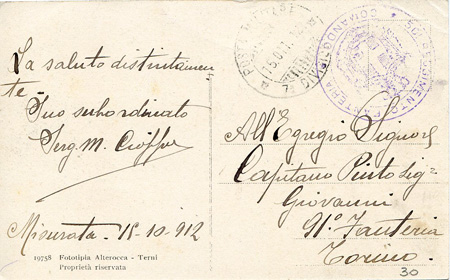 La saluto distintamen
te
Suo subordinato
Serg. M. Cioffi
Misurata - 15-10-912
19758 Fototipia Alterocca - Terni
Proprietà riservata
POSTA MILITARE
REGGIMENTO FANTERIA
COMANDO
All'Egregio Signore
Capitano Pinto Sig=
Giovanni
91º Fanteria
Torino
30